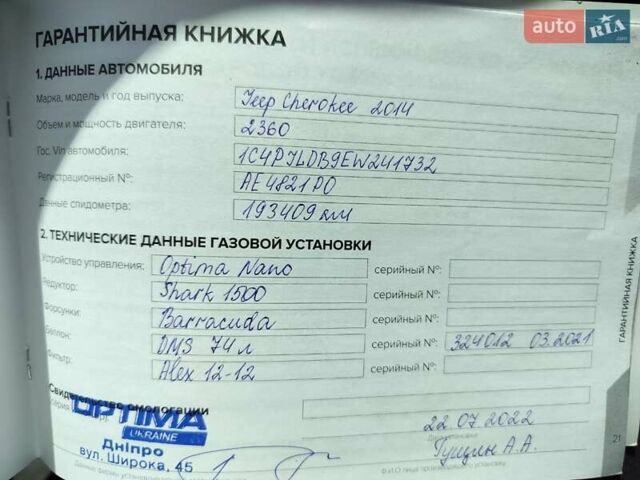 auto RIA .com
ГАРАНТИЙНАЯ КНИЖКА
1. ДАННЫЕ АВТОМОБИЛЯ
Марка, модель и год выпуска: Jeep Cherokee 2014
Объем и мощность двигателя: 2360
Гос. Vin автомобиля: 1C4PJLDB9EW241732
Регистрационный №: AE4821PO
Данные спидометра: 193409 км
2. ТЕХНИЧЕСКИЕ ДАННЫЕ ГАЗОВОЙ УСТАНОВКИ
Устройство управления: Optima Nano серийный №:
Редуктор: Shark 1500 серийный №:
Форсунки: Barracuda серийный №:
Баллон: DMS 74 л серийный №: 324012 03.2021
Фильтр: Alex 12-12 серийный №:
Свидетельство омологации
OPTIMA
UKRAINE
22.07.2022
Дніпро
вул. Широка, 45
Гущин А.А.
Ф.И.О лица производящего установку
ГАРАНТИЙНАЯ КНИЖКА
21